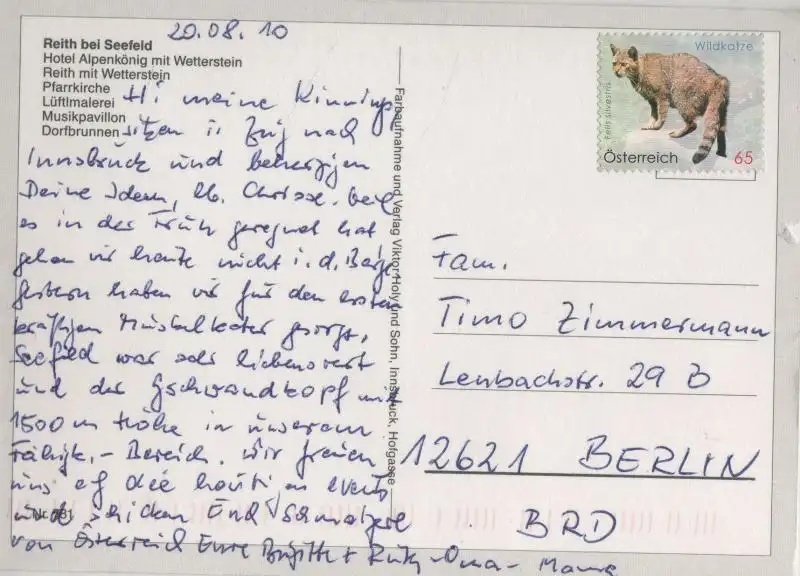 20.08.10
Reith bei Seefeld
Hotel Alpenkönig mit Wetterstein
Reith mit Wetterstein
Pfarrkirche
Lüftlmalerei
Musikpavillon
Dorfbrunnen
Hi meine
sitzen i. Zug nach
Innsbruck und beherzigen
Deine Ideen, lb. Chrisse. Weil
es in der Früh geregnet hat
gehen wir heute nicht i. d. Berge
gestern haben wir für den ersten
kräftigen Muskelkater gesorgt.
Seefeld war sehr liebenswert
und der Gschwandtkopf mit
1500 m Höhe in unserem
Fähigk.-Bereich. Wir freuen
uns
und schicken End Schmatzerl
von Österreich Eure Brigitte + Ruth-Oma-Mama
Nr. 
Farbaufnahme und Verlag Viktor Holy und Sohn, Innsbruck, Hofgasse
Wildkatze
Felis silvestris
Österreich 65
Fam.
Timo Zimmermann
Lenbachstr. 29 B
12621 BERLIN
BRD